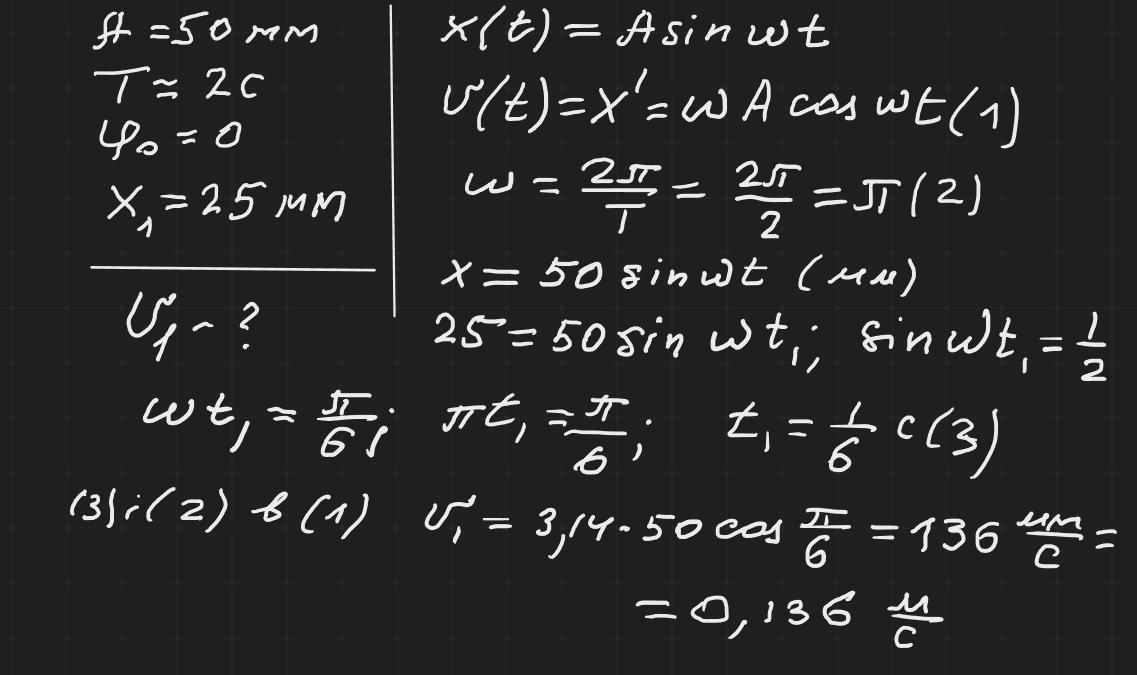 A = 50 мм
T = 2 с
φ₀ = 0
x₁ = 25 мм
υ₁ - ?
x(t) = A sin ωt
υ(t) = x' = ω A cos ωt (1)
ω = 2π/T = 2π/2 = π (2)
x = 50 sin ωt (мм)
25 = 50 sin ωt₁; sin ωt₁ = 1/2
ωt₁ = π/6; πt₁ = π/6; t₁ = 1/6 с (3)
(3) і (2) в (1) υ₁ = 3,14 · 50 cos π/6 = 136 мм/с =
= 0,136 м/с